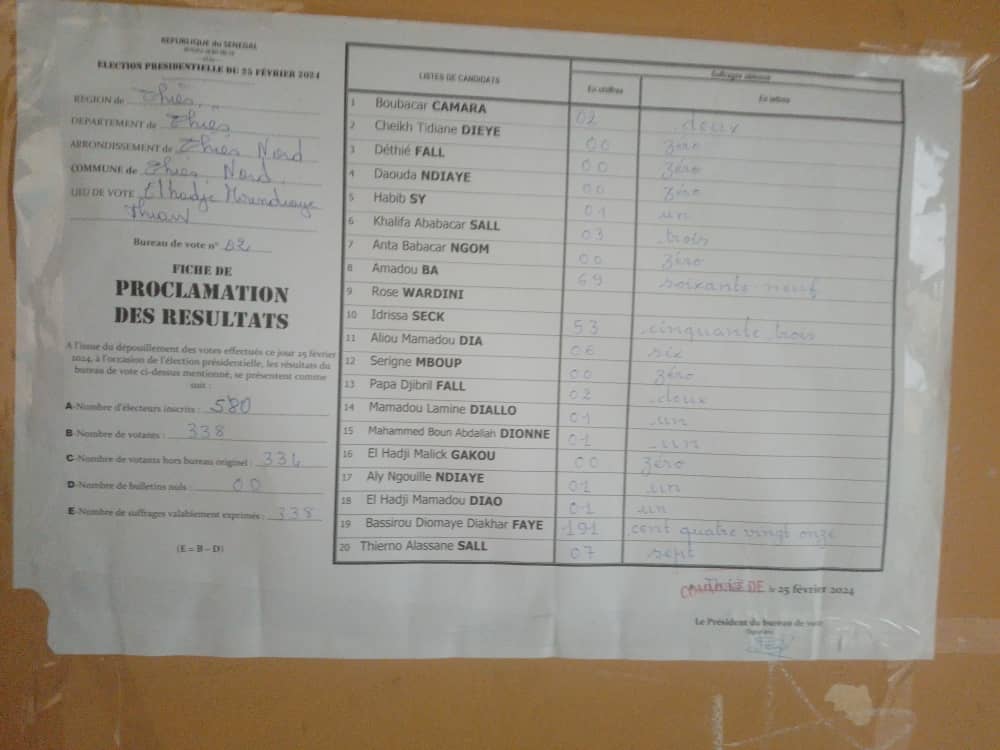 REPUBLIQUE du SENEGAL
ELECTION PRESIDENTIELLE DU 25 FÉVRIER 2024
REGION de Thiès
DEPARTEMENT de Thies
ARRONDISSEMENT de Thies Nord
COMMUNE de Thies Nord
LIEU DE VOTE Elhadje
Bureau de vote n° 02
FICHE DE
PROCLAMATION
DES RESULTATS
A l'issue du dépouillement des votes effectués ce jour 25 février
2024, à l'occasion de l'élection présidentielle, les résultats du
bureau de vote ci-dessus mentionné, se présentent comme
suit :
A-Nombre d'électeurs inscrits : 580
B-Nombre de votants : 338
C-Nombre de votants hors bureau originel :
D-Nombre de bulletins nuls : 00
E-Nombre de suffrages valablement exprimés : 338
(E = B – D)
LISTES DE CANDIDATS
Suffrages obtenus
En chiffres En lettres
1 Boubacar CAMARA 02 deux
2 Cheikh Tidiane DIEYE 00 zéro
3 Déthié FALL 00 zéro
4 Daouda NDIAYE 00 zéro
5 Habib SY 01 un
6 Khalifa Ababacar SALL 03 trois
7 Anta Babacar NGOM 00 zéro
8 Amadou BA 69 soixante neuf
9 Rose WARDINI
10 Idrissa SECK 53 cinquante trois
11 Aliou Mamadou DIA 06 six
12 Serigne MBOUP 00 zéro
13 Papa Djibril FALL 02 deux
14 Mamadou Lamine DIALLO 01 un
15 Mahammed Boun Abdallah DIONNE 01 un
16 El Hadji Malick GAKOU 00 zéro
17 Aly Ngouille NDIAYE 01 un
18 El Hadji Mamadou DIAO 01 un
19 Bassirou Diomaye Diakhar FAYE 191 cent quatre vingt onze
20 Thierno Alassane SALL 07 sept
le 25 février 2024
Le Président du bureau de vote